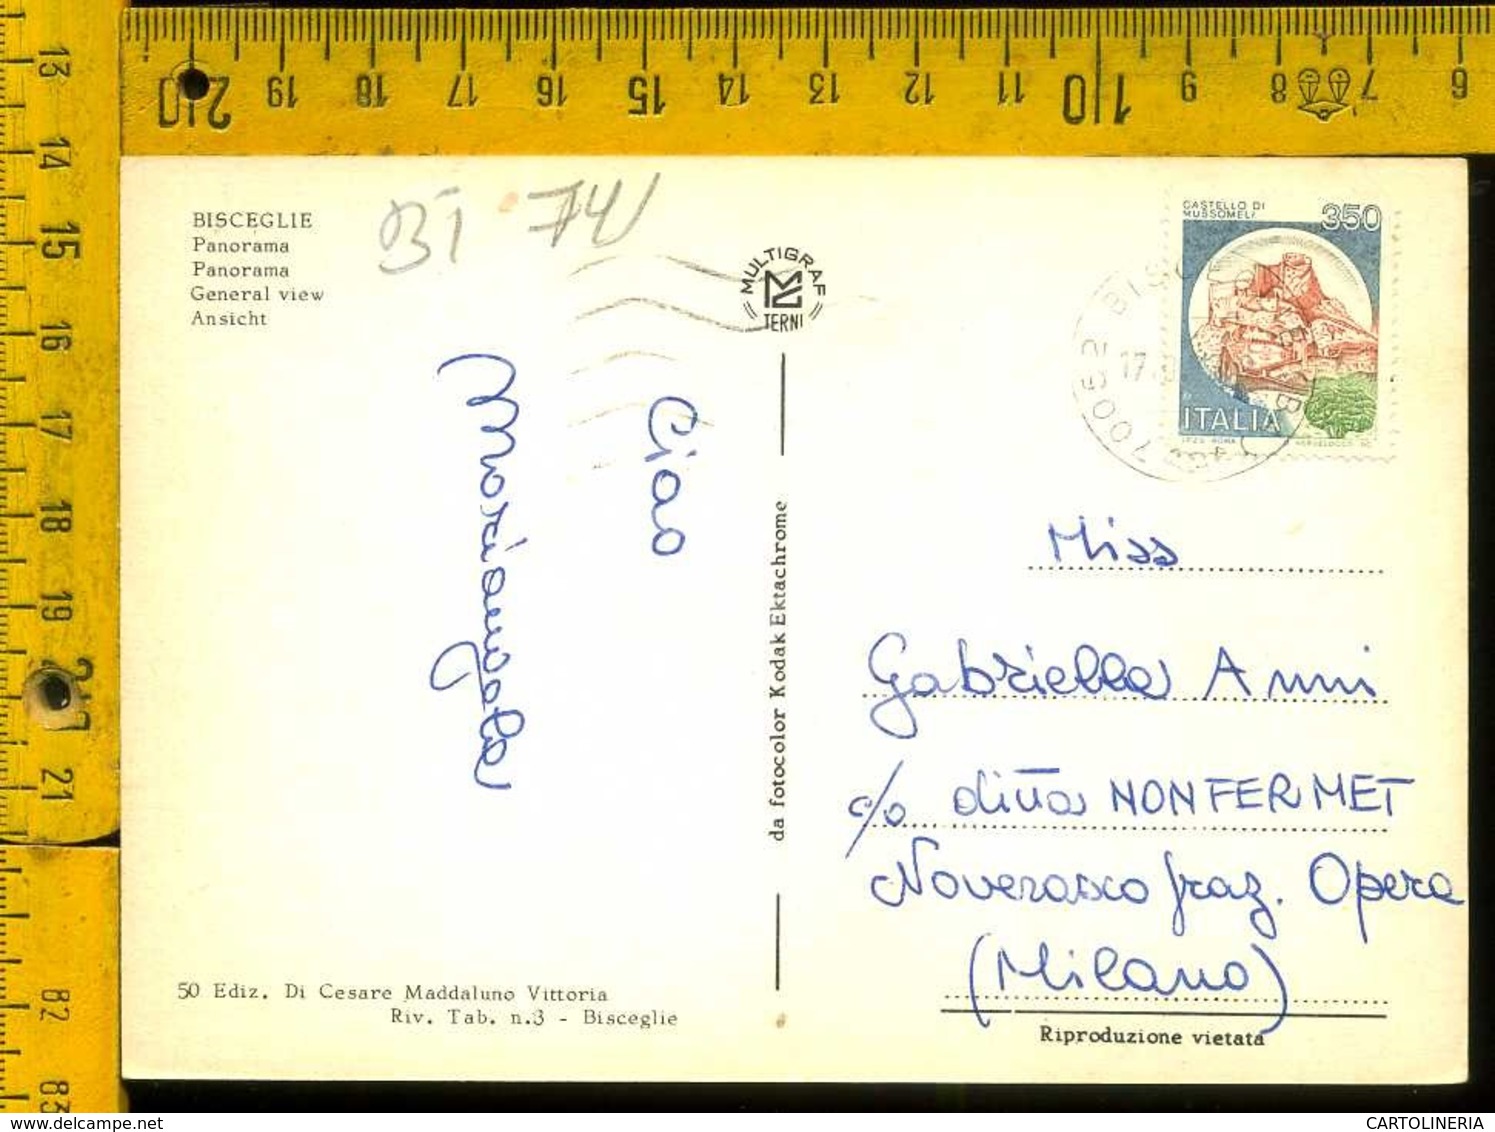 BISCEGLIE
Panorama
Panorama
General view
Ansicht
BT 74
MULTIGRAF
TERNI
CASTELLO DI
MUSSOMELI
350
ITALIA
70052 BISC
17
Ciao
Mariangela
da fotocolor Kodak Ektachrome
Miss
Gabriella Anni
c/o ditta NONFERMET
Noverasco fraz. Opera
(Milano)
Riproduzione vietata
50 Ediz. Di Cesare Maddaluno Vittoria
Riv. Tab. n.3 - Bisceglie
20 19 18 17 16 15 14 13 12 11 10 9 8 7 6
13
14
15
16
17
18
19
20
21
82
83
CARTOLINERIA